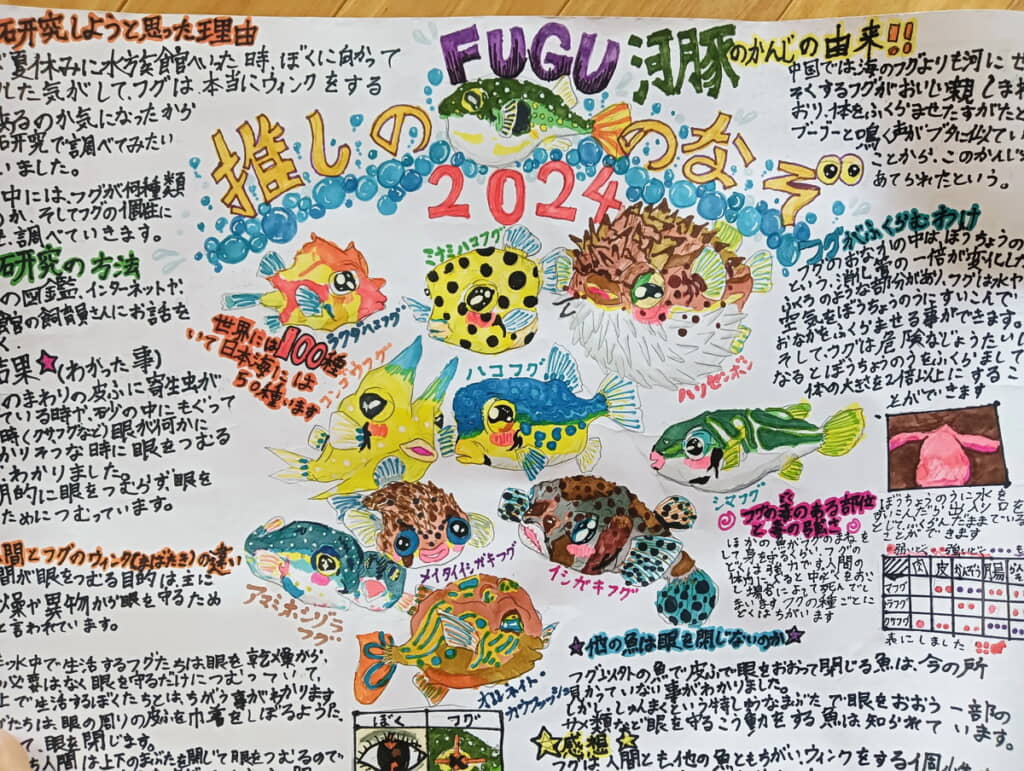 研究しようと思った理由
夏休みに水族館へいった時、ぼくに向かって
した気がして、フグは本当にウィンクをする
のか気になったから
研究で調べてみたい
いました。
中には、フグが何種類
か、そしてフグの個性に
調べていきます。
研究の方法
の図鑑、インターネットや、
館の飼育員さんにお話を
結果★(わかった事)
のまわりの皮ふに寄生虫が
ている時や、砂の中にもぐって
時(クサフグなど)眼が何かに
かりそうな時に眼をつむる
わかりました。
的に眼をつむらず眼を
ためにつむっています。
人間とフグのウィンク(まばたき)の違い
間が眼をつむる目的は、主に
燥や異物から眼を守るため
と言われています。
水中で生活するフグたちは眼を乾燥から、
必要はなく眼を守るだけにつむっていて、
上で生活するぼくたちとは、ちがう事がわかります
たちは、眼の周りの皮ふを巾着をしぼるように
て、眼を閉じます。
ち人間は上下のまぶたを閉じて眼をつむるので
FUGU 河豚のかんじの由来!!
推しの
のなぞ
2024
中国では海のフグよりも河に
そくするフグがおいしく親しまれ
おり、体をふくらませたすがたと
ブーブーと鳴く声がブタに似ている
ことから、このかんじが
あてられたという。
ラクダハコフグ
ミナミハコフグ
ハリセンボン
世界には100種
いて日本海には
50種います
コンゴウフグ
ハコフグ
シマフグ
アマミホシゾラ
フグ
メイタイシガキフグ
イシガキフグ
オルネイト・
カウフィッシュ
フグがふくらむわけ
フグのおなかの中は、ぼうちょうの
という、消し管の一部が変化した
ふくろのような部分があり、フグは水や
空気をぼうちょうのうにすいこんで
おなかをふくらませる事ができます。
そして、フグは危険なじょうたいに
なるとぼうちょうのうをふくらまして
体の大きさを2倍以上にするこ
とができます
ぼうちょうのうに水を
すいこんだら出入り口を
とじてふくらんだままでいる
ことができます
フグの毒のある部位
と毒の強さ
ほかの魚からのまねを
して身を守るくらい、フグの
どくは強力です。人間の
体内に入ると中どくをおこ
し場合によって死んでし
まいます。フグの種ごとに
どくはちがいます
弱いどく
強いどく
肉
皮
かんぞう
腸
マフグ
トラフグ
クサフグ
表にしました
★他の魚は眼を閉じないのか★
フグ以外の魚で皮ふで眼をおおって閉じる魚は、今の所
見かっていない事がわかりました。
しかし、しゅんまくという特しゅなまぶたで眼をおおう一部の
サメ類など眼を守るこう動をする魚は知られています。
★感想★
フグは人間とも、他の魚ともちがい、ウィンクをする個
ぼく
フグ